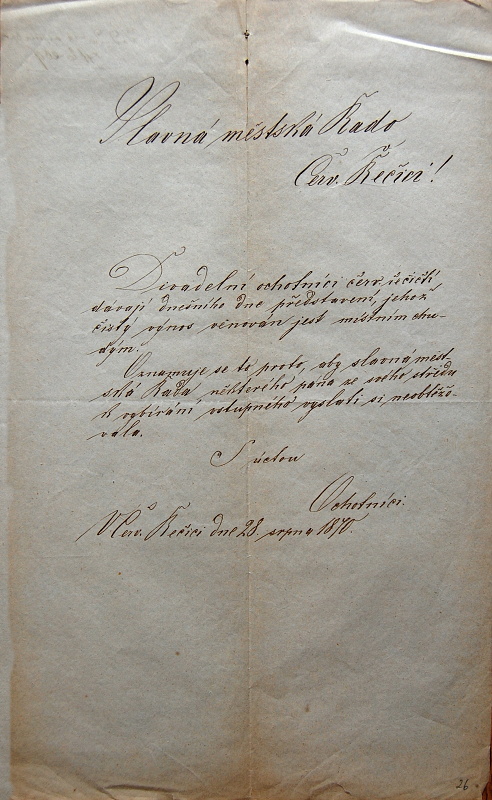 Slavná městská Rado
Červ. Řečici!
Divadelní ochotníci červ. řečičtí
dávají dnešního dne představení, jehož
čistý výnos věnován jest místním chu-
dým.
Oznamuje se to proto, aby slavná měst-
ská Rada některého pána ze svého středu
k vybírání vstupného vyslati si neobtěžo-
vala.
S úctou
Ochotníci.
V Červ. Řečici dne 28. srpna 1870.
26